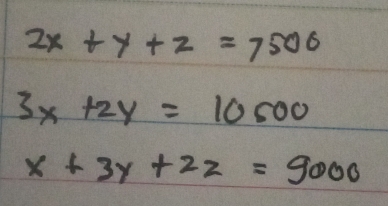 2x + y + z = 7500
3x + 2y = 10500
x + 3y + 2z = 9000